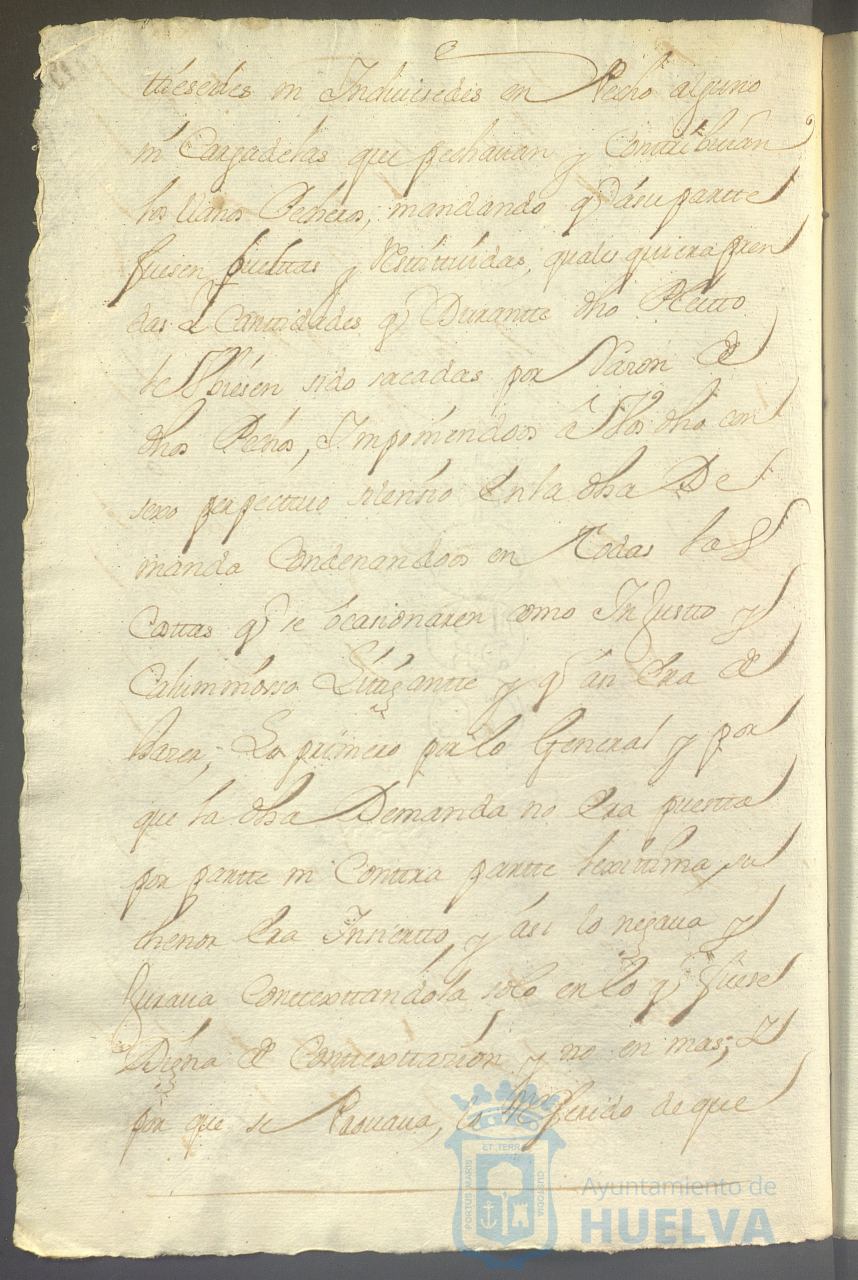 ttiesedes ni Induciesedes en Pecho alguno
ni Cargadelas que pechauan y Contribuian
los llanos Pecheros, mandando q ásu partte
fuesen bueltas y Restituidas, quales quiera pren
das Y Canttidades q Durantte dho Pleitto
le Vbiésen sido sacadas por Razon de
dhos Pechos, Imponiendoos á Vos dho con
sexo perpettuo silensio en la dha De
manda Condenandoos en Todas las
Costtas q se ocasionaren como Injustto y
Calumnioso Littigantte y q así era de
hazer; Lo primero por lo General y por
que la dha Demanda no era puestta
por partte ni Conttra partte lexittima, su
thenor era Insiertto, y ási lo negaua y
Juraua Conttesttandola solo en lo q fuese
Digna de Conttesttazion y no en mas; Y
por que se fasuaua, lo Referido de que
ET TERRÆ
PORTUS MARIS
CUSTODIA
Ayuntamiento de
HUELVA